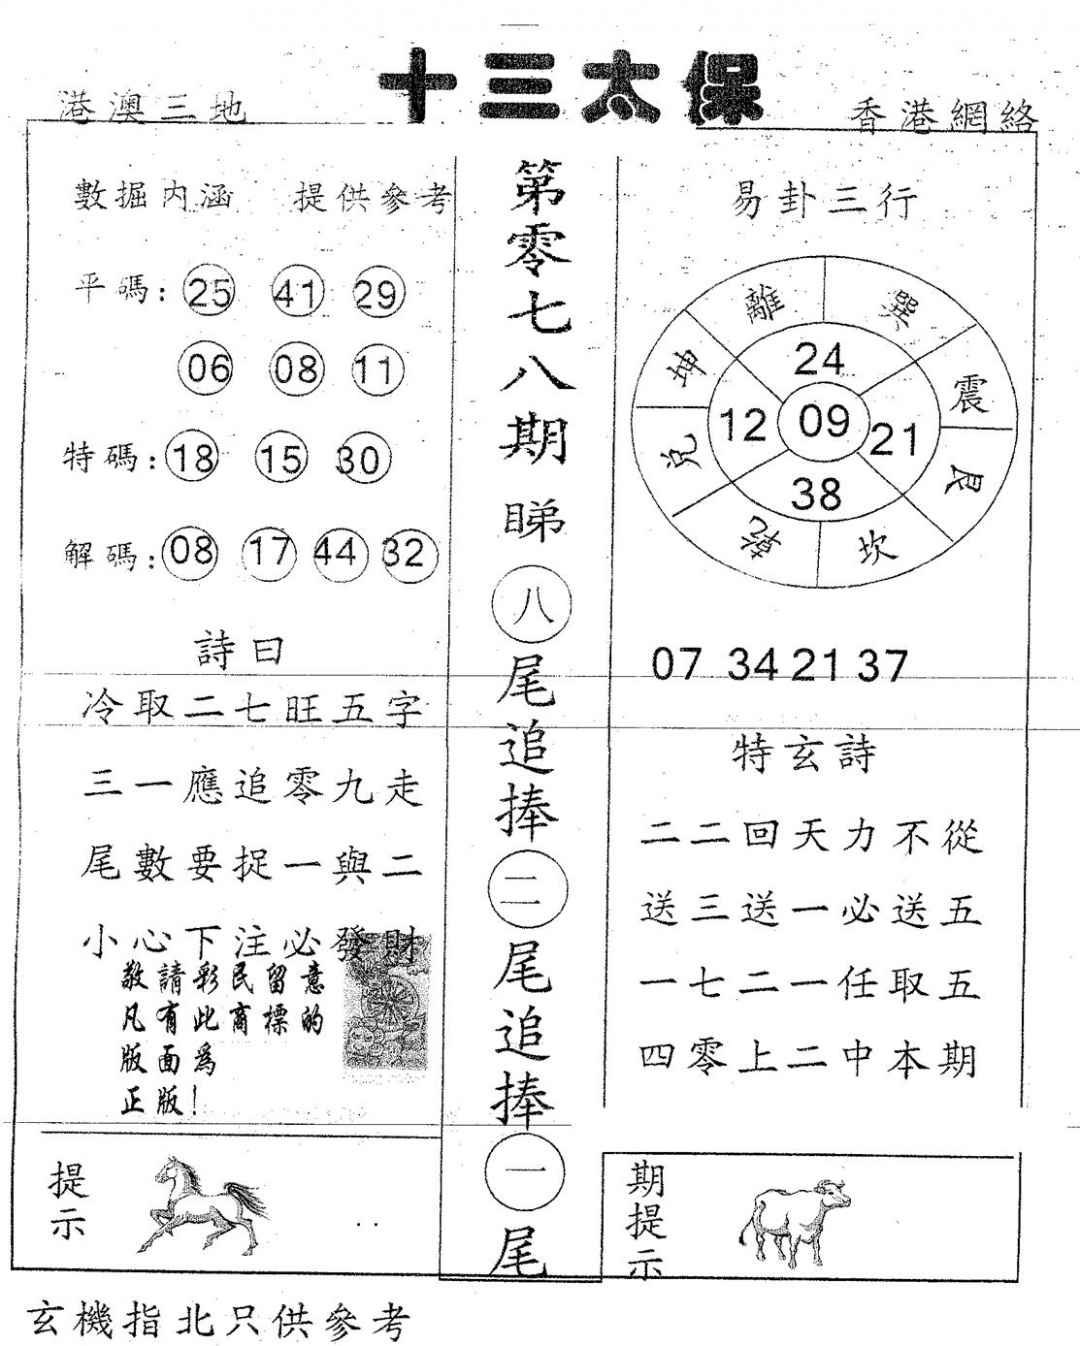 十三太保
港澳三地
香港網絡
數掘内涵 提供參考
平碼: 25 41 29
06 08 11
特碼: 18 15 30
解碼: 08 17 44 32
詩曰
冷取二七旺五字
三一應追零九走
尾數要捉一與二
小心下注必發財
敬請彩民留意
凡有此商標的
版面爲
正版!
提示
第零七八期睇八尾追捧二尾追捧一尾
易卦三行
離 巽
坤 24 震
12 09 21
兌 38 艮
乾 坎
07 34 21 37
特玄詩
二二回天力不從
送三送一必送五
一七二一任取五
四零上二中本期
期提示
玄機指北只供參考